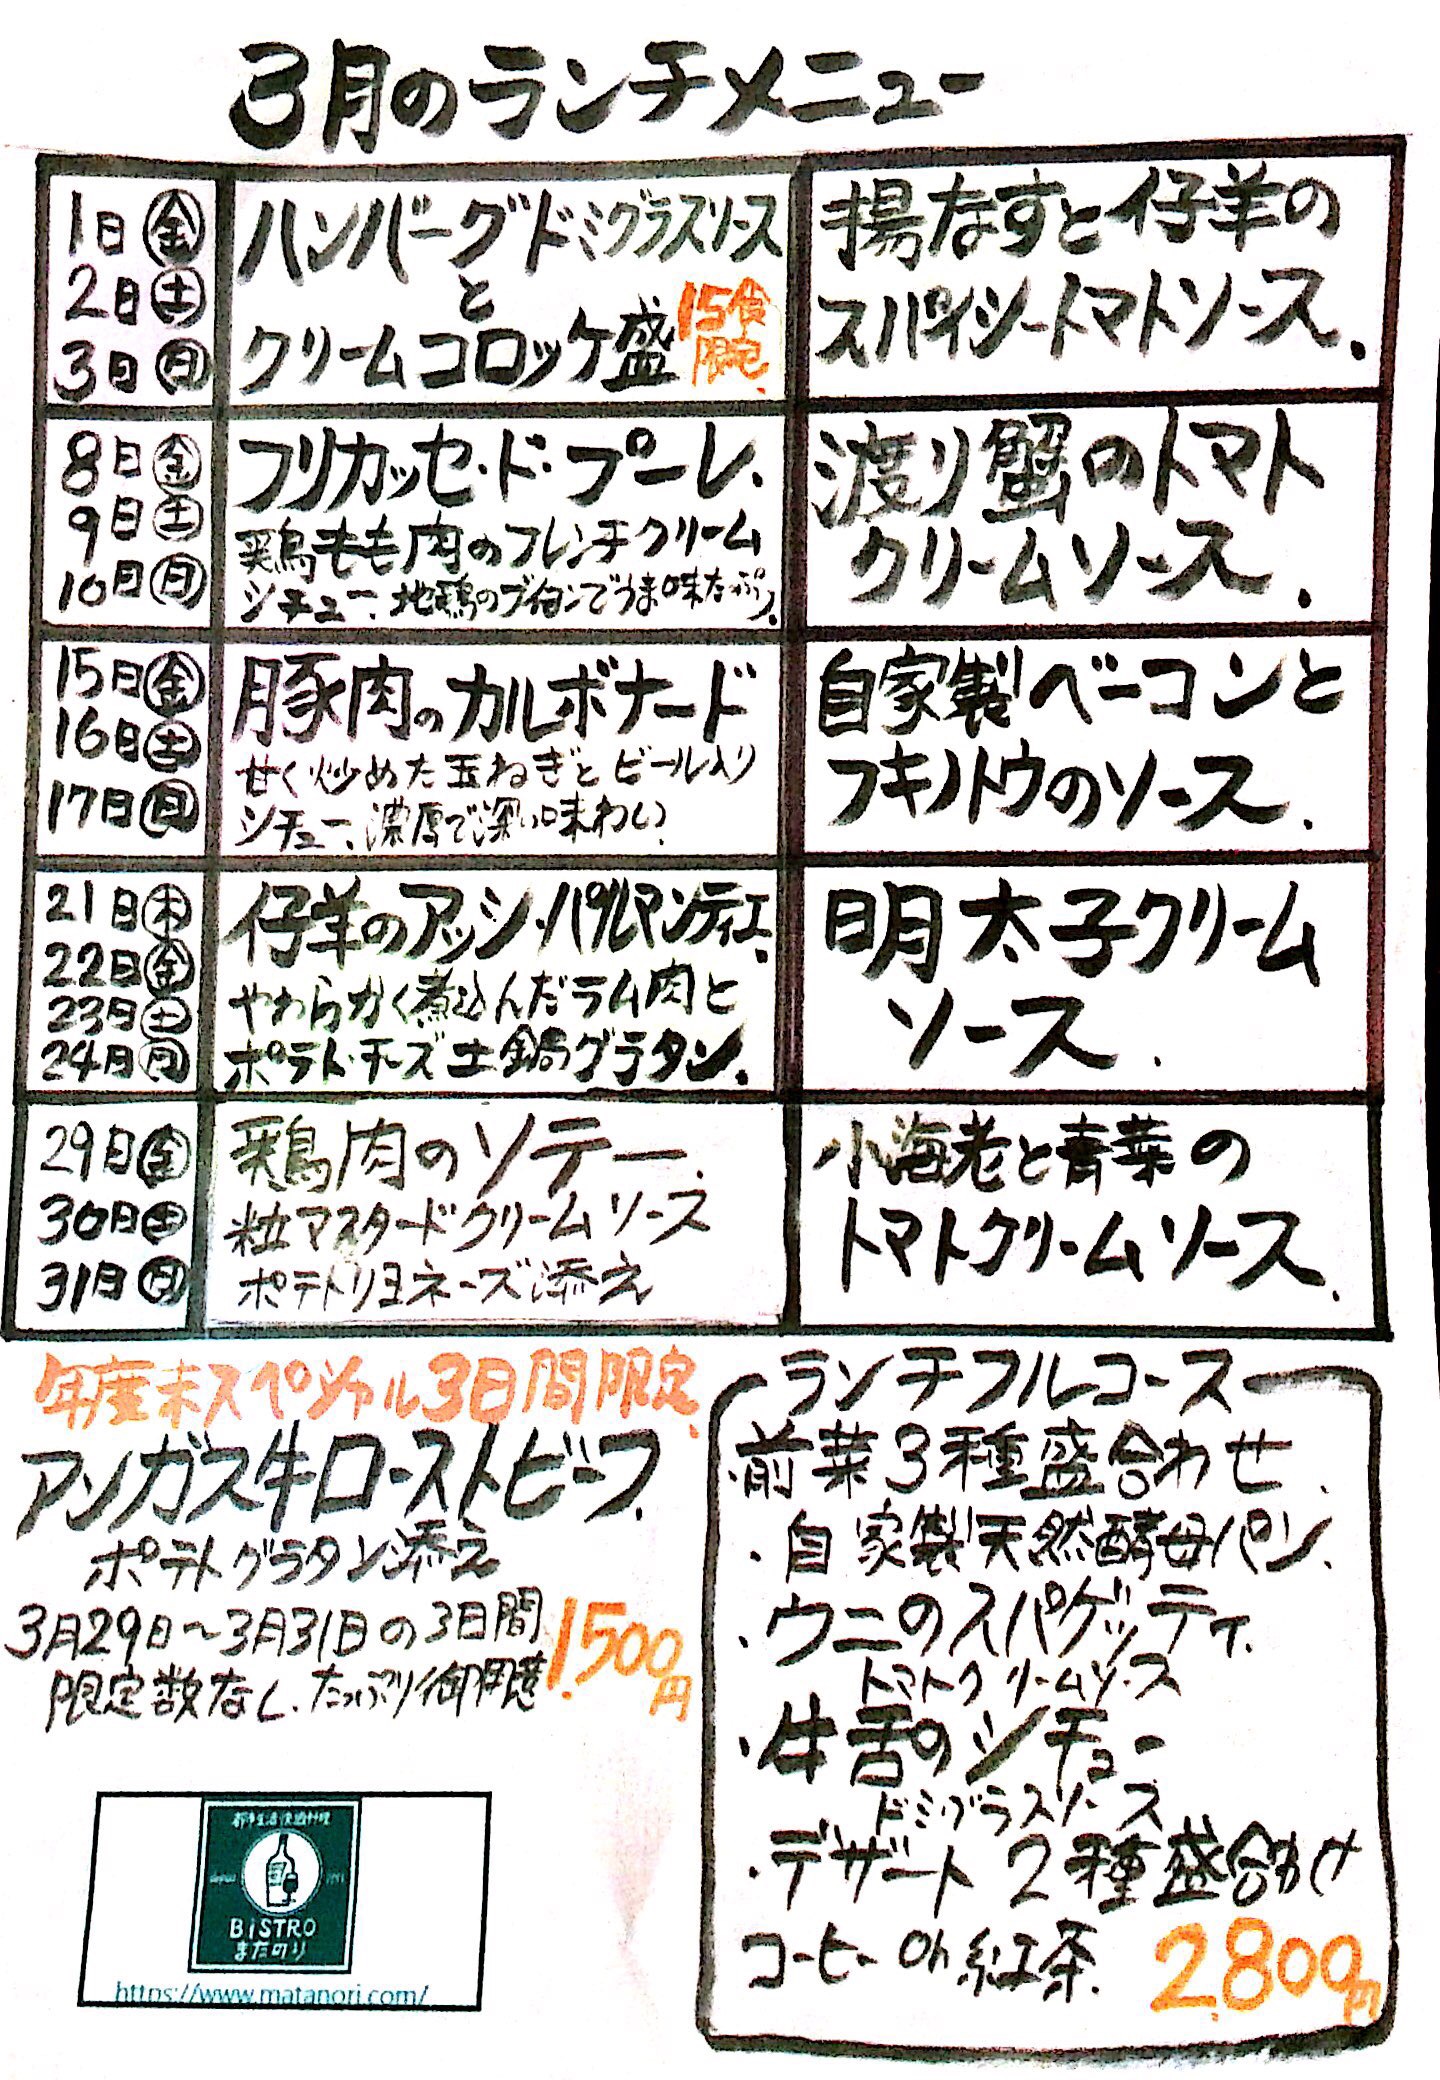 3月のランチメニュー
1日金
2日土
3日日
ハンバーグドミグラスソース
と
クリームコロッケ盛
15食
限定.
揚なすと仔羊の
スパイシートマトソース.
8日金
9日土
10日日
フリカッセ・ド・プーレ.
鶏もも肉のフレンチクリーム
シチュー、地鶏のブイヨンでうま味たっぷり.
渡り蟹のトマト
クリームソース.
15日金
16日土
17日日
豚肉のカルボナード
甘く炒めた玉ねぎとビール入り
シチュー、濃厚で深い味わい.
自家製ベーコンと
フキノトウのソース.
21日木
22日金
23日土
24日日
仔羊のアッシ・パルマンティエ.
やわらかく煮込んだラム肉と
ポテト・チーズ土鍋グラタン.
明太子クリーム
ソース.
29日金
30日土
31日日
鶏肉のソテー.
粒マスタードクリームソース
ポテトリヨネーズ添え
小海老と青菜の
トマトクリームソース.
年度末スペシャル3日間限定.
アンガス牛ローストビーフ.
ポテトグラタン添え
3月29日～3月31日の3日間
限定数なし、たっぷり御用意
1.500円
ランチフルコース
・前菜3種盛合わせ.
・自家製天然酵母パン.
・ウニのスパゲッティ.
トマトクリームソース
・牛舌のシチュー
ドミグラスソース
・デザート2種盛合わせ
コーヒー or 紅茶.
2.800円
都津生活倶楽部料理
BiSTRO
またのり
https://www.matanori.com/